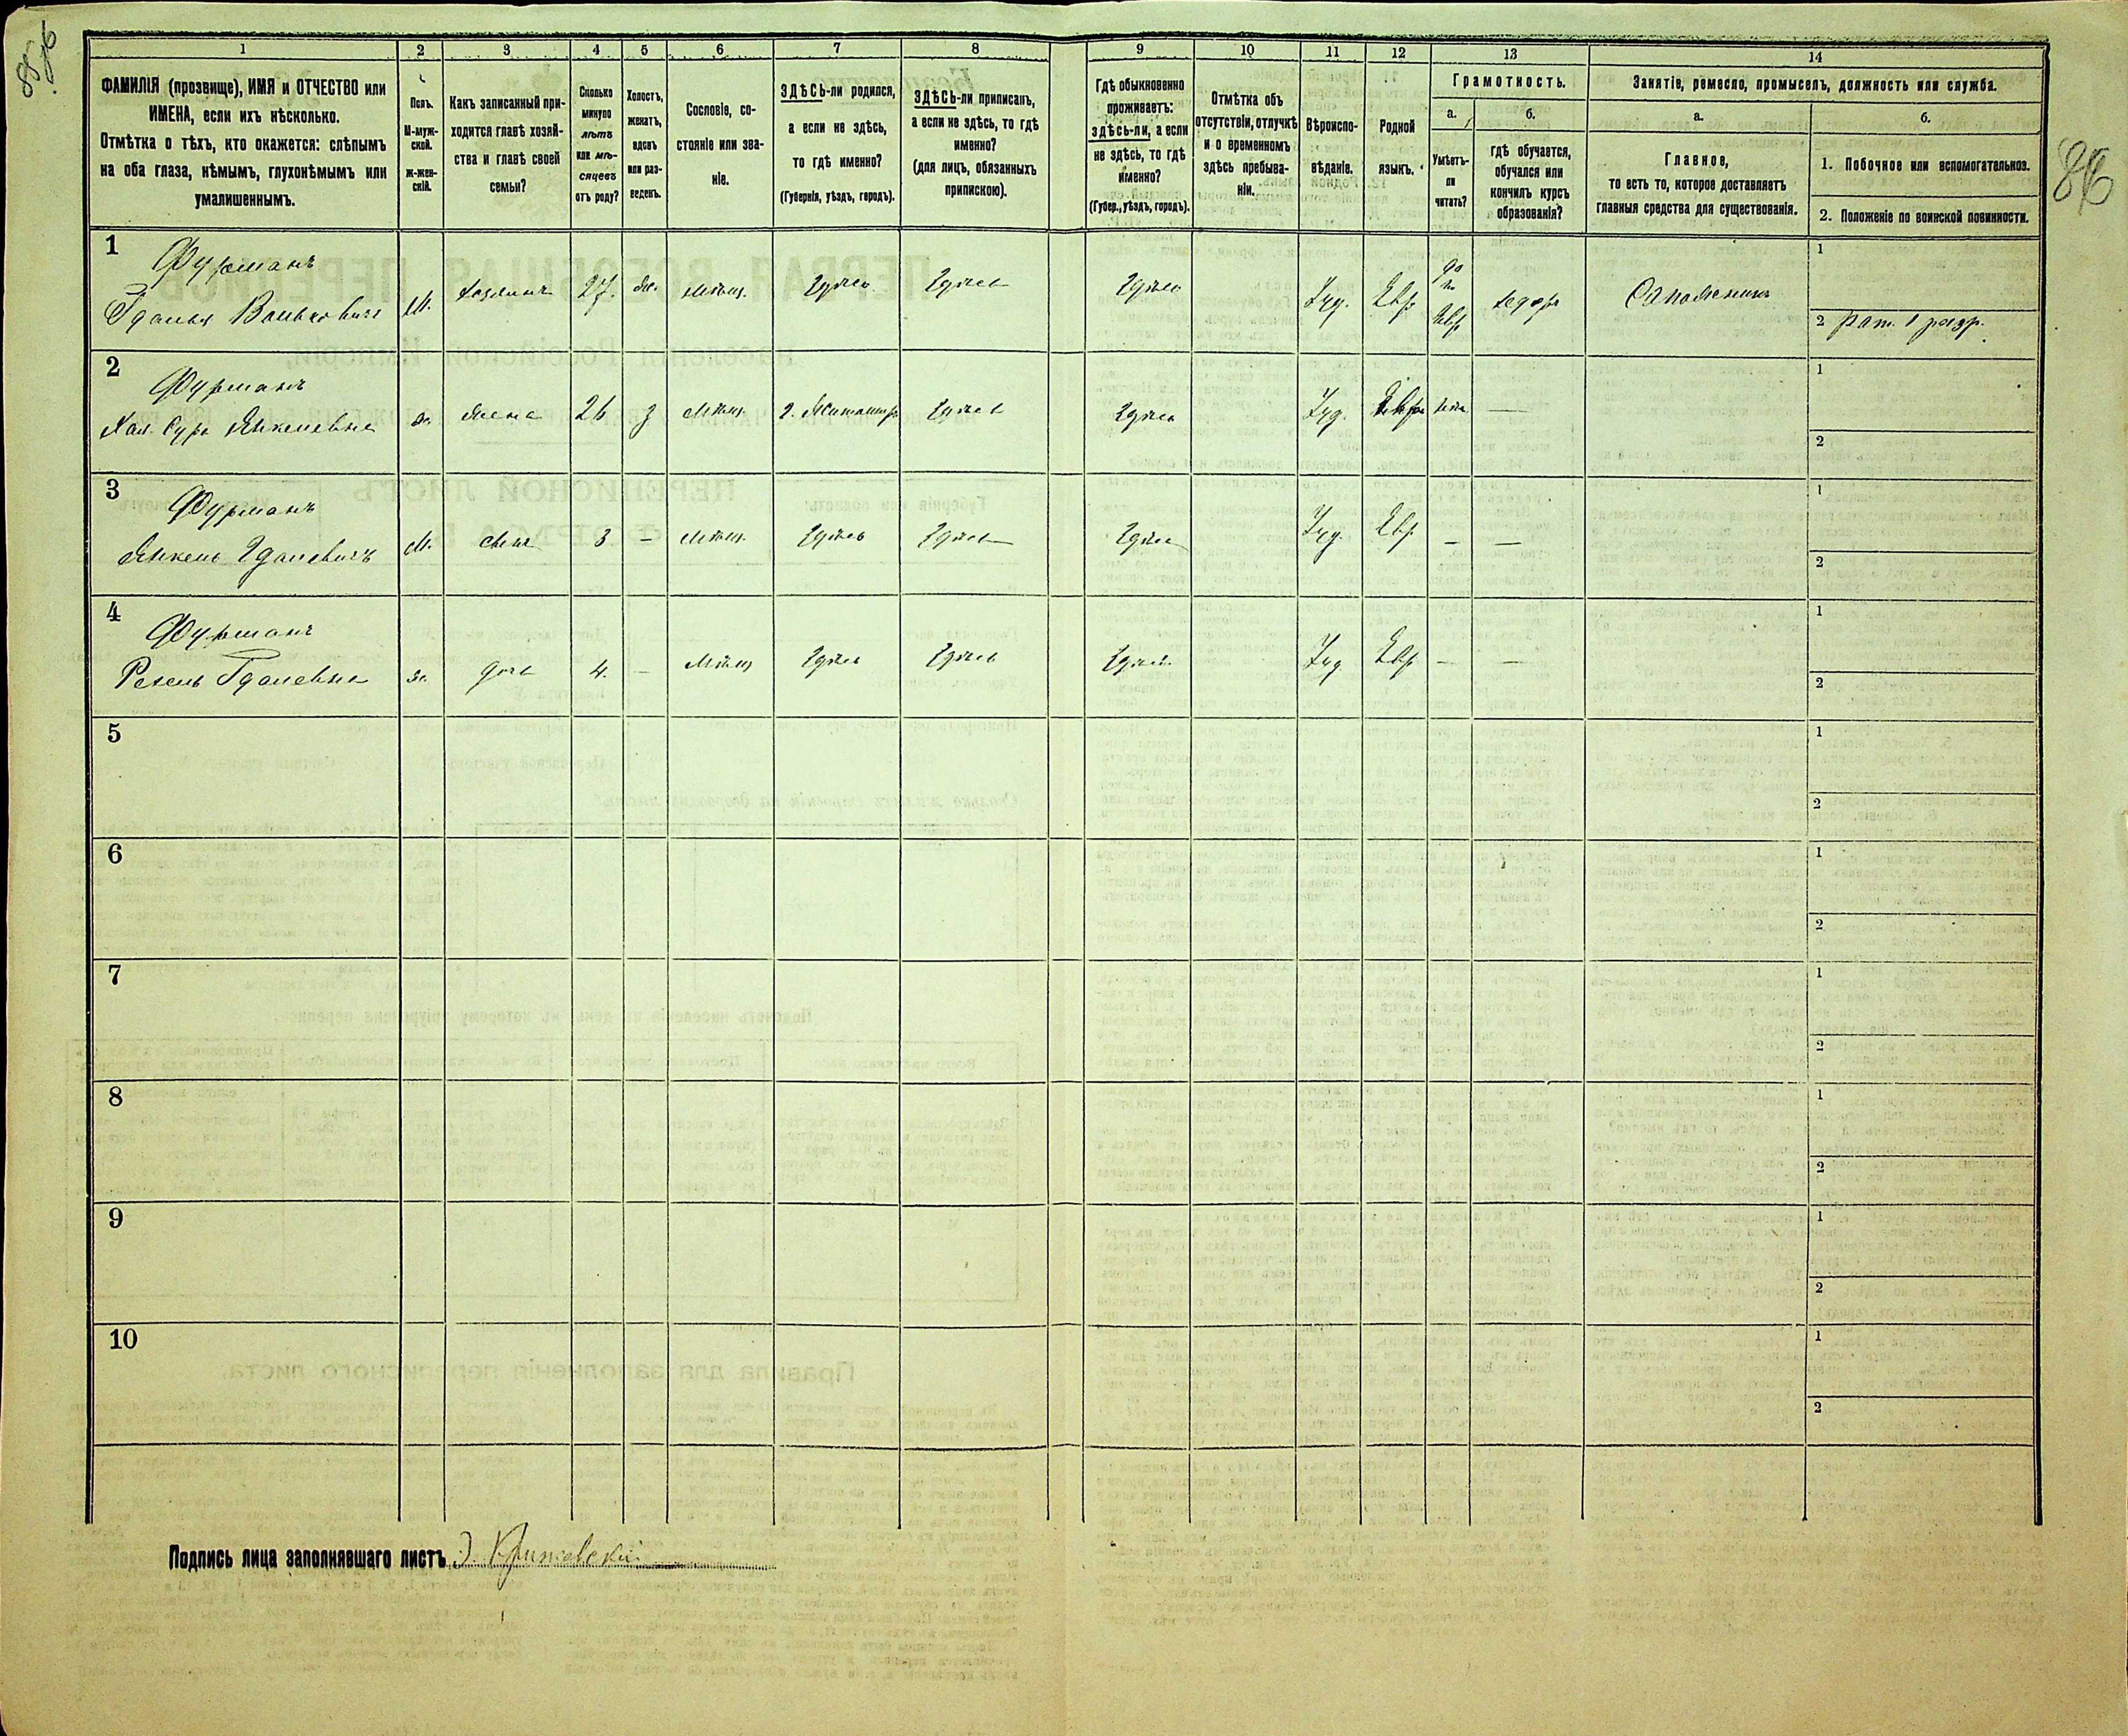 86
86
1
2
3
4
5
6
7
8
9
10
11
12
13
14
ФАМИЛІЯ (прозвище), ИМЯ и ОТЧЕСТВО или
ИМЕНА, если ихъ нѣсколько.
Отмѣтка о тѣхъ, кто окажется: слѣпымъ
на оба глаза, нѣмымъ, глухонѣмымъ или
умалишеннымъ.
Полъ.
М-муж-
ской.
ж-жен-
скій.
Какъ записанный при-
ходится главѣ хозяй-
ства и главѣ своей
семьи?
Сколько
минуло
лѣтъ
или мѣ-
сяцевъ
отъ роду?
Холостъ,
женатъ,
вдовъ
или раз-
веденъ.
Сословіе, со-
стояніе или зва-
ніе.
ЗДѢСЬ-ли родился,
а если не здѣсь,
то гдѣ именно?
(Губернія, уѣздъ, городъ).
ЗДѢСЬ-ли приписанъ,
а если не здѣсь, то гдѣ
именно?
(для лицъ, обязанныхъ
припискою).
Гдѣ обыкновенно
проживаетъ:
здѣсь-ли, а если
не здѣсь, то гдѣ
именно?
(Губер., уѣздъ, городъ).
Отмѣтка объ
отсутствіи, отлучкѣ
и о временномъ
здѣсь пребыва-
ніи.
Вѣроиспо-
вѣданіе.
Родной
языкъ.
Грамотность.
а.
Умѣетъ-
ли
читать?
б.
гдѣ обучается,
обучался или
кончилъ курсъ
образованія?
Занятіе, ремесло, промыселъ, должность или служба.
а.
Главное,
то есть то, которое доставляетъ
главныя средства для существованія.
б.
1. Побочное или вспомогательное.
2. Положеніе по воинской повинности.
1
Фурманъ
Гдалья Вольковичъ
М.
хозяинъ
27.
Же.
Мѣщ.
Здѣсь
Здѣсь
Здѣсь
Іуд.
Евр
да
Евр
хедеръ
Сапожникъ
1
2 Рат. 1 разр.
2
Фурманъ
Хая Сура Янкелевна
ж.
жена
26
з
Мѣщ.
Здѣсь
Здѣсь
Іуд.
Евр
нѣтъ
—
1
2
3
Фурманъ
Янкель Гдалевичъ
М.
сынъ
3
–
Мѣщ.
Здѣсь
Здѣсь
Здѣсь
Іуд.
Евр
–
—
1
2
4
Фурманъ
Гдалевна
ж.
дочь
4.
–
Мѣщ
Здѣсь
Здѣсь
Здѣсь
Іуд.
Евр
–
–
1
2
5
1
2
6
1
2
7
1
2
8
1
2
9
1
2
10
1
2
Подпись лица заполнявшаго листъ